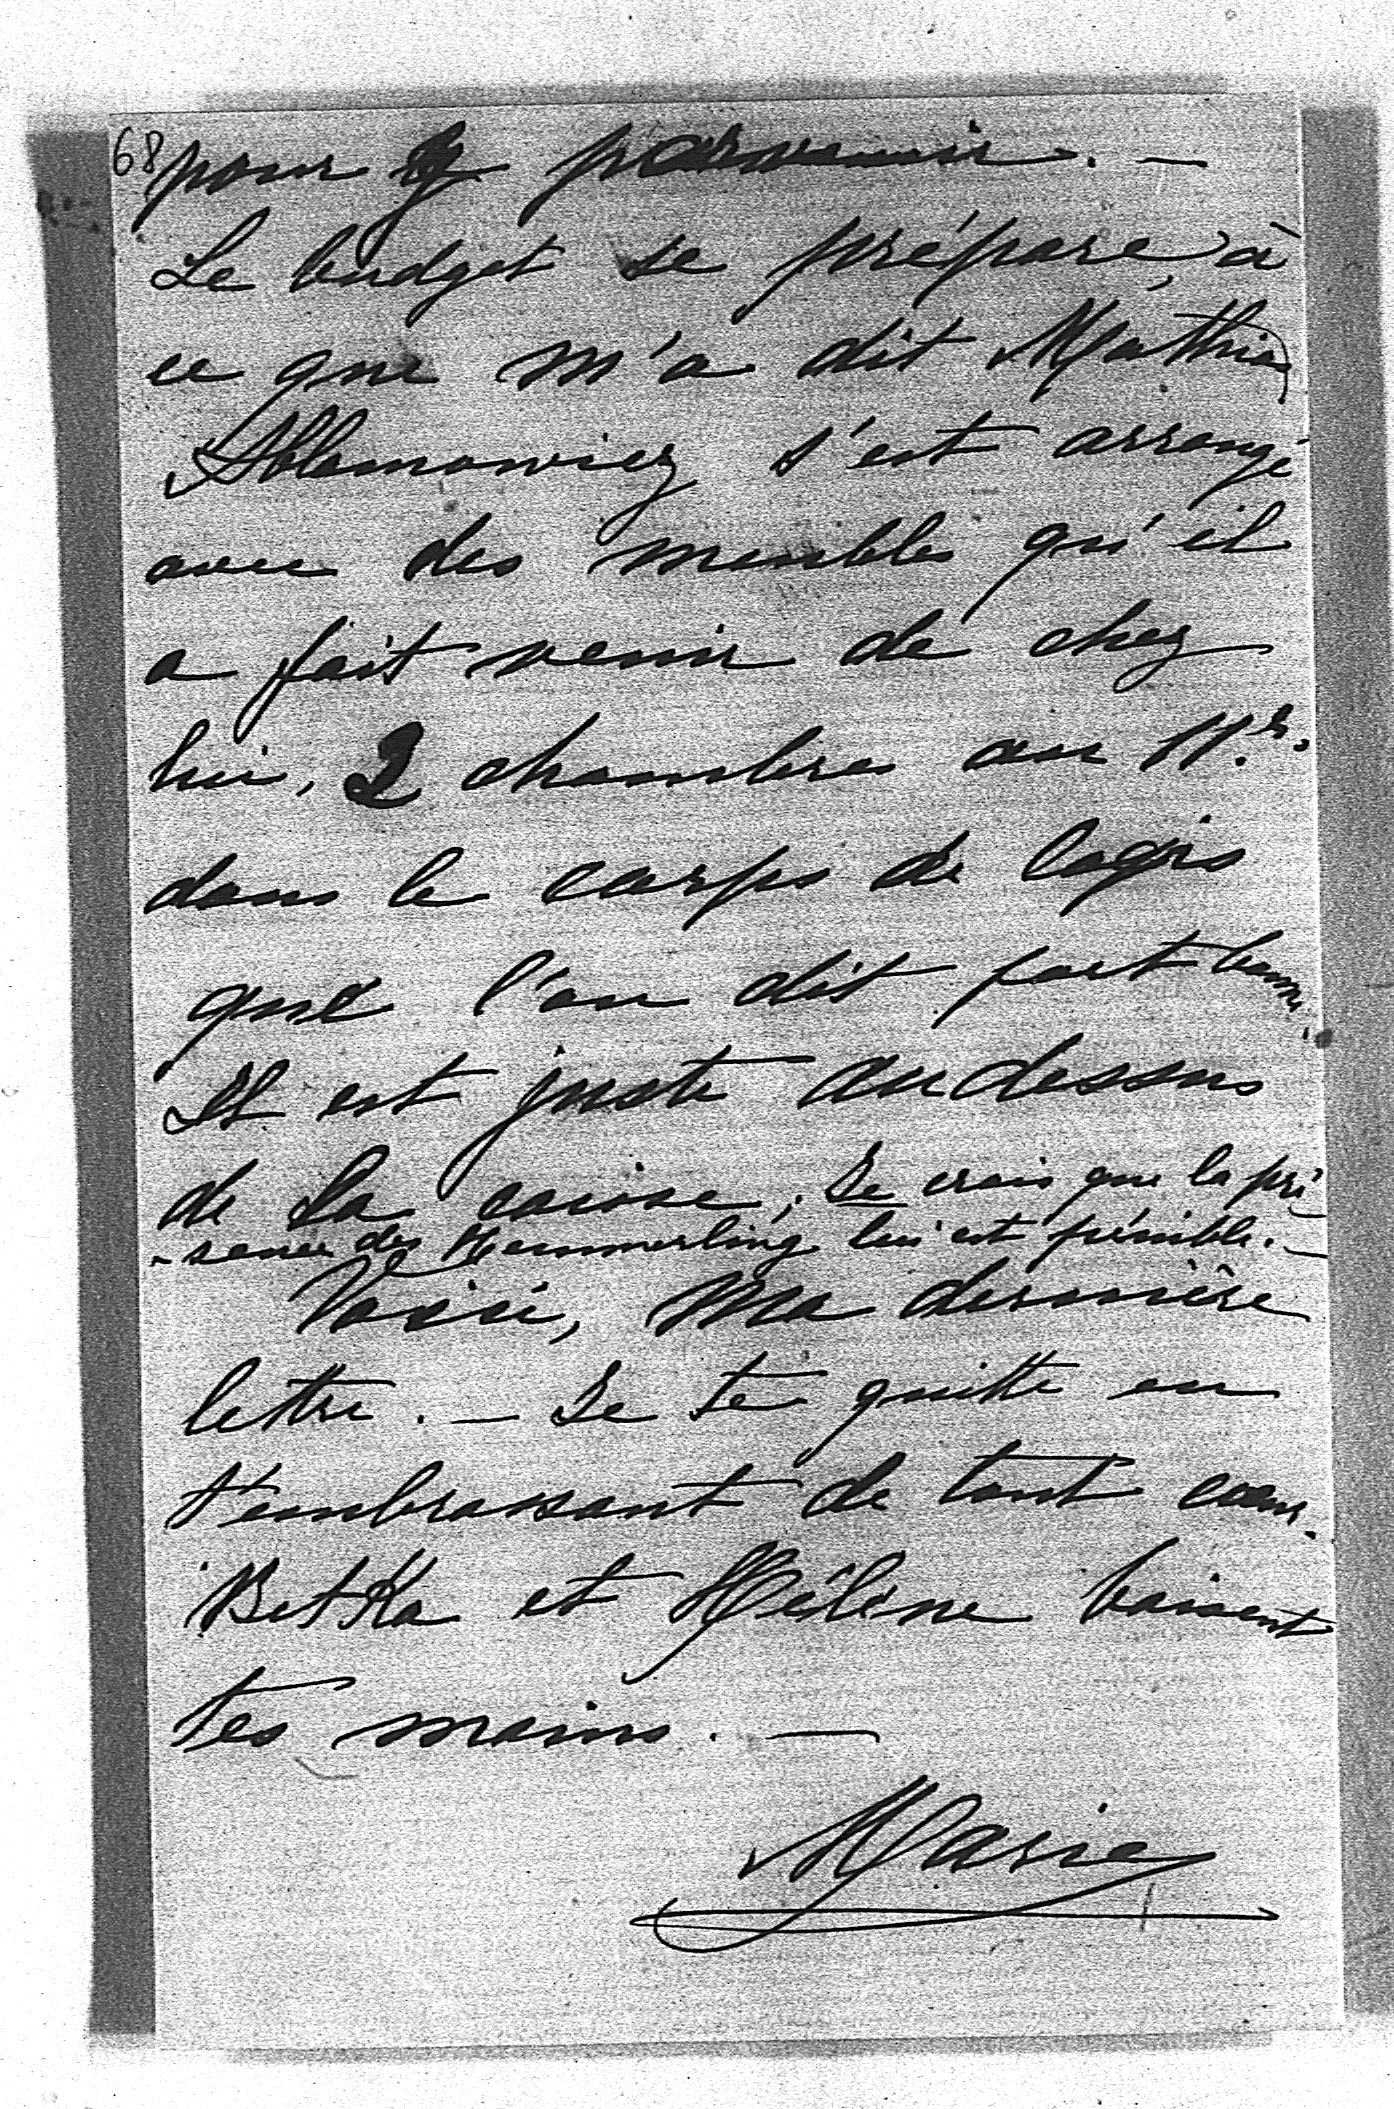 68
pour y parvenir. —
Le budget se prépare, à
ce que m'a dit Mathias
Ablamowicz s'est arrangé
avec des meubles qu'il
a fait venir de chez
lui, 2 chambres au
dans le corps de logis
que l'on dit fort
Il est juste audessus
de la caisse. Je crois que la pré-
-sence des Hemmerling lui est pénible. —
Voici, ma dernière
lettre. — Je te quitte en
t'embrassant de tout coeur.
Betka et Hélène baisent
tes mains. —
Marie